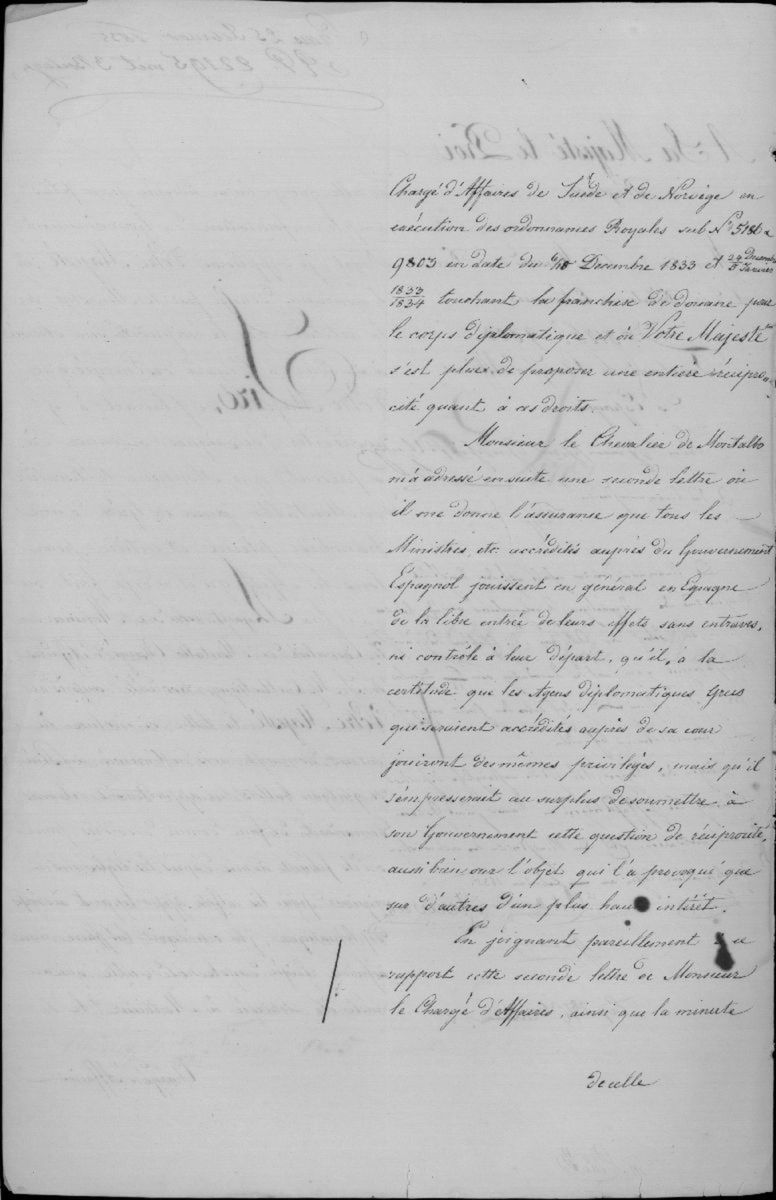 Chargé d'Affaires de Suède et de Norvège en
exécution des ordonnances Royales sub Nº 5186 &
9803 en date du 6/18 Decembre 1833 et 24 Decembre/5 Janvier
1833/1834 touchant la franchise de douane pour
le corps diplomatique et où Votre Majesté
s'est plue de proposer une entière récipro-
cité quant à ces droits.
Monsieur le Chevalier de Montalbo
m'a adressé ensuite une seconde lettre où
il me donne l'assurance que tous les
Ministres, etc. accrédités auprès du Gouvernement
Espagnol jouissent en général en Espagne
de la libre entrée de leurs effets sans entraves,
ni contrôle à leur départ, qu'il, a la
certitude que les Agens diplomatiques grecs
qui seraient accrédités auprès de sa cour
jouiront des mêmes privilèges, mais qu'il
s'empresserait au surplus de soumettre à
son Gouvernement cette question de réciprocité,
aussi bien sur l'objet qui l'a provoqué que
sur d'autres d'un plus haut intérêt.
En joignant pareillement à ce
rapport cette seconde lettre de Monsieur
le Chargé d'Affaires, ainsi que la minute
de celle